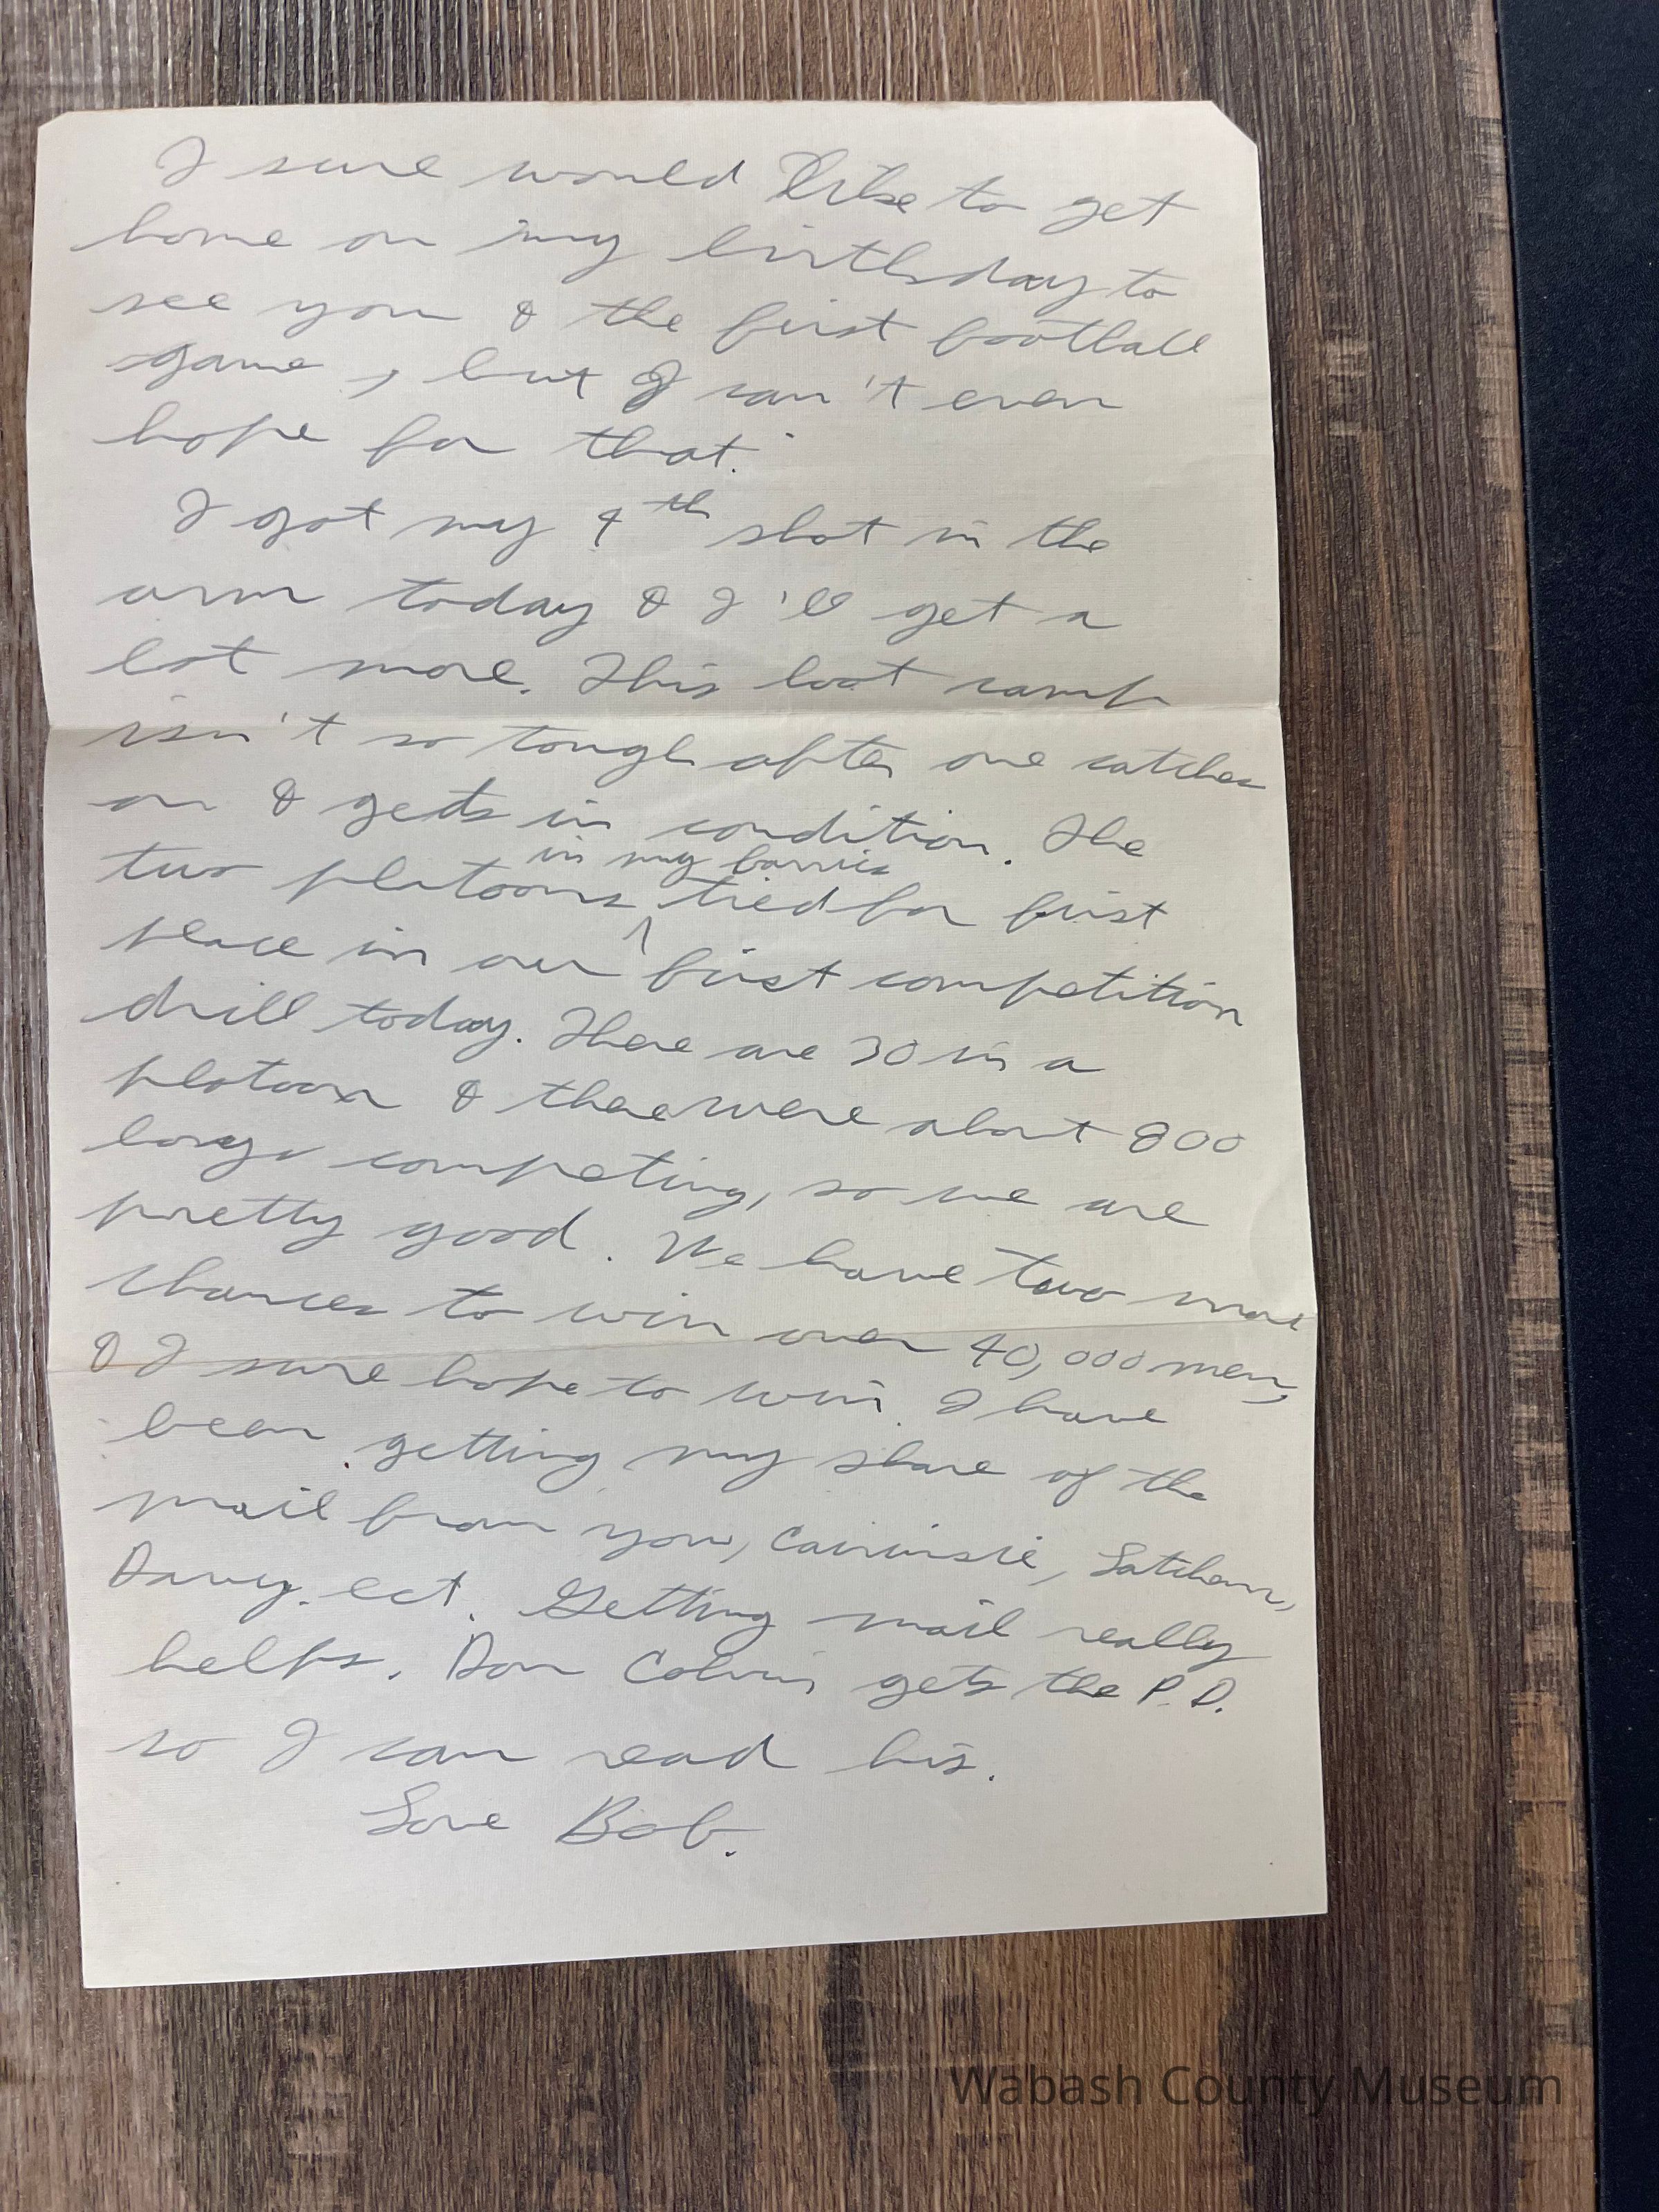 I sure would like to get
home on my birthday to
see you & the first football
game, but I can't even
hope for that.
I got my 4th shot in the
arm today & I'll get a
lot more. This boot camp
isn't so tough after one catches
on & gets in condition. The
in my barrics
two platoons ^ tied for first
place in our first competition
drill today. There are 30 in a
platoon & there were about 800
boys competing, so we are
pretty good. We have two more
chances to win over 40,000 men,
& I sure hope to win. I have
been getting my share of the
mail from you,
Davy. ect. Getting mail really
helps. Don Colvin gets the P.D.
so I can read his.
Love Bob.
Wabash County Museum